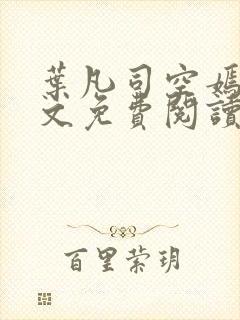 葉凡司空嫣
文免費閱讀
百里萦玥